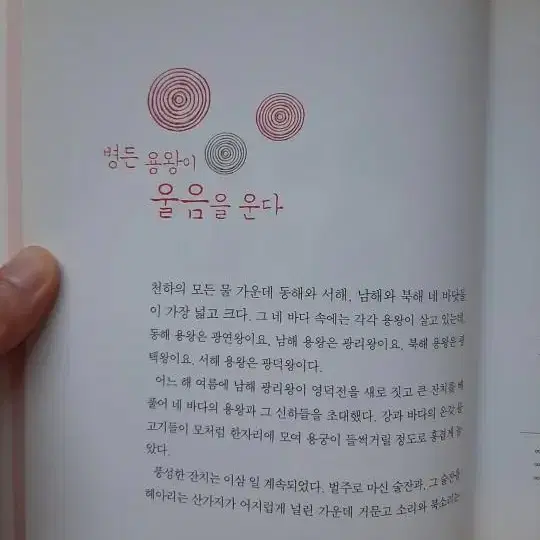 병든 용왕이
울음을 운다
천하의 모든 물 가운데 동해와 서해, 남해와 북해 네 바닷물
이 가장 넓고 크다. 그 네 바다 속에는 각각 용왕이 살고 있는데,
동해 용왕은 광연왕이요, 남해 용왕은 광리왕이요, 북해 용왕은 광
택왕이요, 서해 용왕은 광덕왕이다.
어느 해 여름에 남해 광리왕이 영덕전을 새로 짓고 큰 잔치를 베
풀어 네 바다의 용왕과 그 신하들을 초대했다. 강과 바다의 온갖 물
고기들이 모처럼 한자리에 모여 용궁이 들썩거릴 정도로 흥겹게 놀
았다.
풍성한 잔치는 이삼 일 계속되었다. 벌주로 마신 술잔과, 그 술잔을
헤아리는 산가지가 어지럽게 널린 가운데 거문고 소리와 북소리는